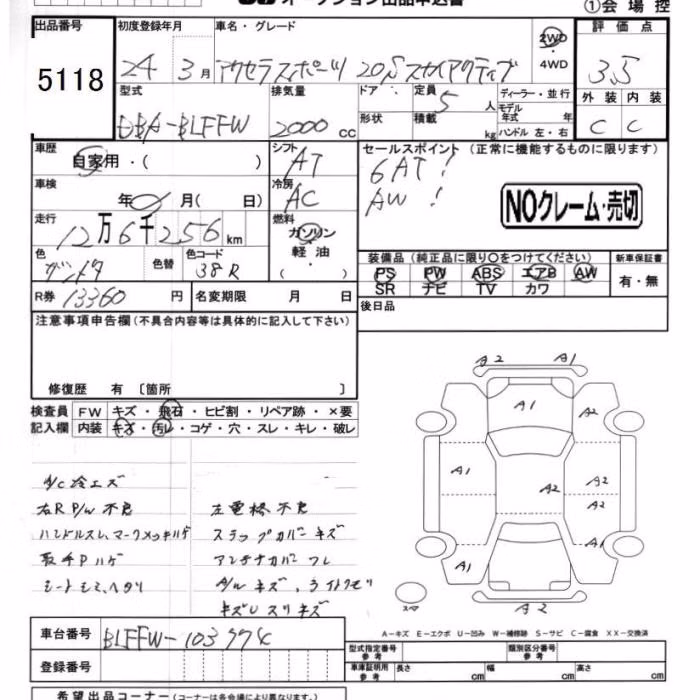 オークション出品申込書
①会場控
出品番号
5118
初度登録年月
24 3月
車名・グレード
アクセラスポーツ 20S スカイアクティブ
2WD・
4WD
評価点
3.5
型式
DBA-BLFFW
排気量
2000 cc
ドア
形状
定員 5 人
積載 kg
ディーラー・並行
モデル年式 年
ハンドル 左・右
外装 内装
C C
車歴
自家用・( )
シフト
AT
セールスポイント (正常に機能するものに限ります)
6AT!
AW!
NOクレーム・売切
車検
年 月( 日)
冷房
AC
走行
12万6千256 km
燃料
ガソリン
・
軽油
・
( )
色
色替
色コード
38R
装備品(純正品に限り○をつけてください)
PS PW ABS エアB AW
SR ナビ TV カワ
新車保証書
有・無
R券 13360 円
名変期限 月 日
後日品
注意事項申告欄(不具合内容等は具体的に記入して下さい)
修復歴 有〔箇所 〕
検査員 FW キズ・飛石・ヒビ割・リペア跡・×要
記入欄 内装 キズ・汚レ・コゲ・穴・スレ・キレ・破レ
A/C冷エズ
右R P/W 不良 左電格不良
ハンドルスレ、マークメッキハゲ ステップカバーキズ
取手Pハゲ アンテナカバーワレ
シートシミ、ヘタリ A/Wキズ、ライトクモリ
キズUスリキズ
A2 A1
A1 A2
A1 A2 A2
A2
A1 A1
スペア A2
A-キズ E-エクボ U-凹み W-補修跡 S-サビ C-腐食 XX-交換済
車台番号
登録番号
型式指定番号
参考
類別区分番号
参考
車庫証明用
参考
長さ cm 幅 cm 高さ cm
希望出品コーナー(コーナーは各会場により異なります。)